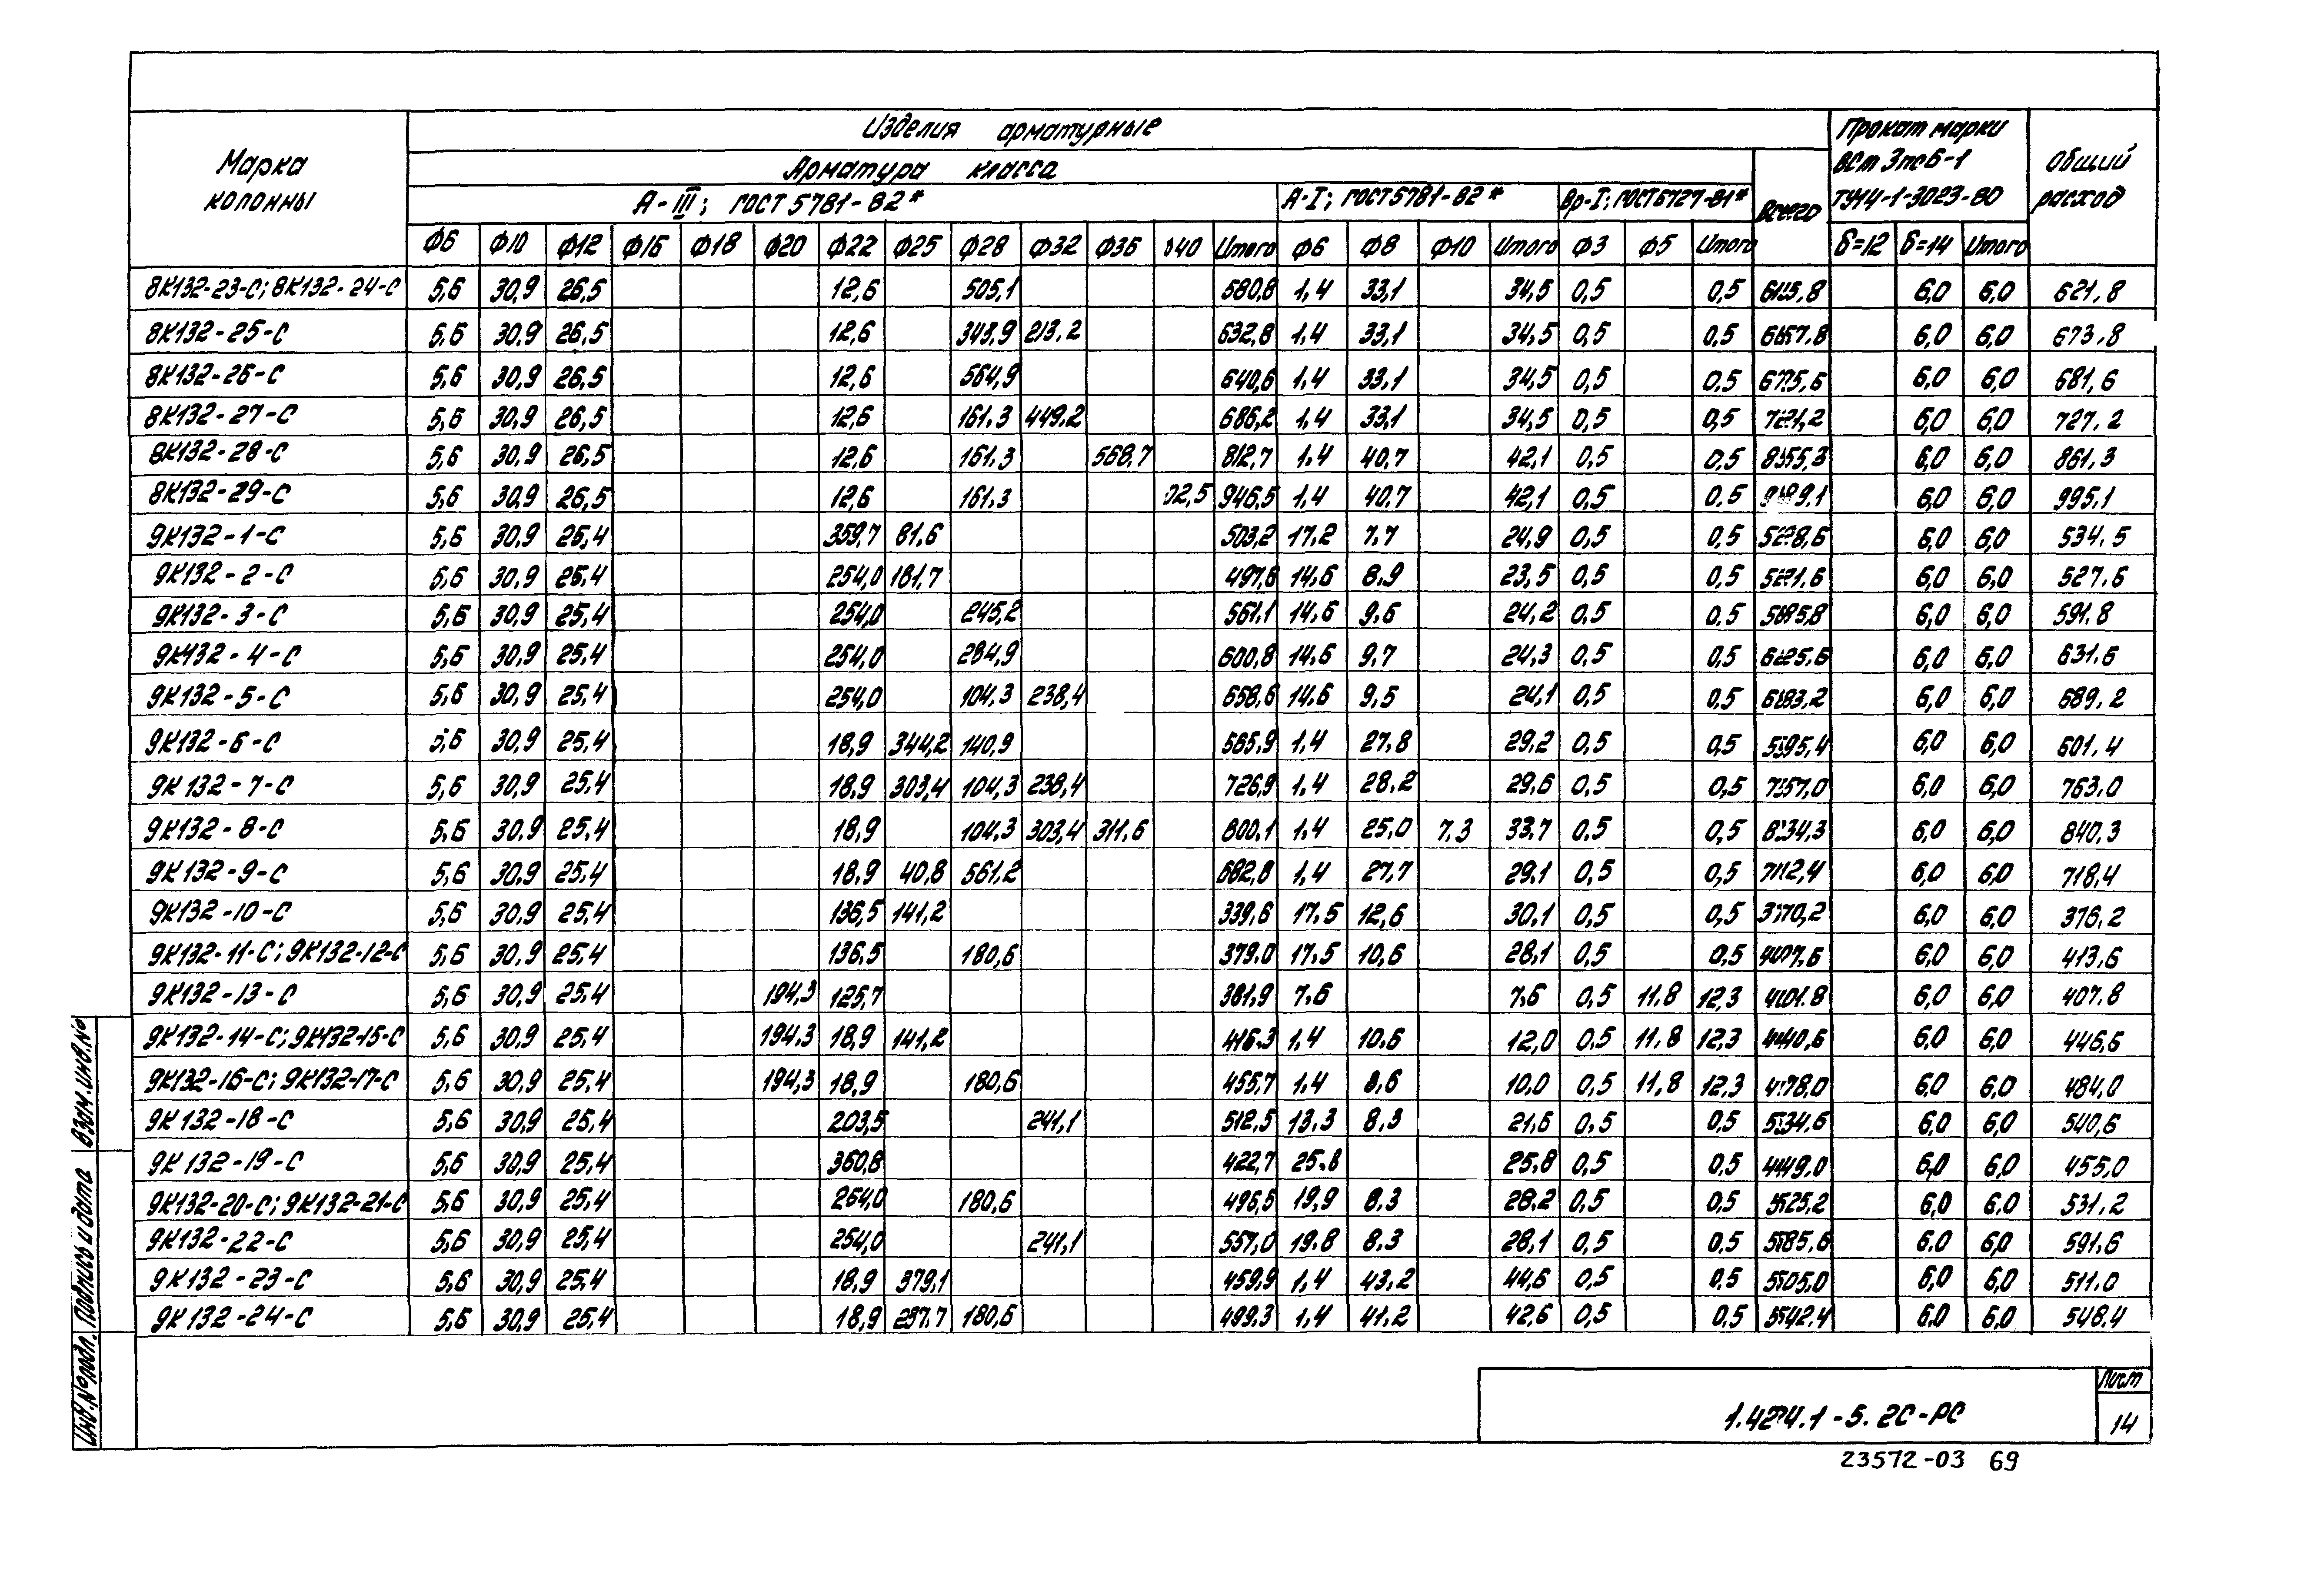 Изделия арматурные
Марка колонны
Арматура класса
Прокат марки ВСт 3пс6-1 ТУ14-1-3023-80
Общий расход
А-III; ГОСТ 5781-82*
А-I; ГОСТ 5781-82*
Вр-I; ГОСТ 6727-81*
Всего
Ф6 Ф10 Ф12 Ф16 Ф18 Ф20 Ф22 Ф25 Ф28 Ф32 Ф36 40 Итого Ф6 Ф8 Ф10 Итого Ф3 Ф5 Итого δ=12 δ=14 Итого
8К132-23-С; 8К132-24-С 5,6 30,9 26,5 12,6 505,1 580,8 1,4 33,1 34,5 0,5 0,5 615,8 6,0 6,0 621,8
8К132-25-С 5,6 30,9 26,5 12,6 343,9 213,2 632,8 1,4 33,1 34,5 0,5 0,5 667,8 6,0 6,0 673,8
8К132-26-С 5,6 30,9 26,5 12,6 564,9 640,6 1,4 33,1 34,5 0,5 0,5 675,6 6,0 6,0 681,6
8К132-27-С 5,6 30,9 26,5 12,6 161,3 449,2 686,2 1,4 33,1 34,5 0,5 0,5 721,2 6,0 6,0 727,2
8К132-28-С 5,6 30,9 26,5 12,6 161,3 568,7 812,7 1,4 40,7 42,1 0,5 0,5 855,3 6,0 6,0 861,3
8К132-29-С 5,6 30,9 26,5 12,6 161,3 02,5 946,5 1,4 40,7 42,1 0,5 0,5 989,1 6,0 6,0 995,1
9К132-1-С 5,6 30,9 25,4 359,7 81,6 503,2 17,2 7,7 24,9 0,5 0,5 528,6 6,0 6,0 534,5
9К132-2-С 5,6 30,9 25,4 254,0 181,7 497,6 14,6 8,9 23,5 0,5 0,5 521,6 6,0 6,0 527,6
9К132-3-С 5,6 30,9 25,4 254,0 245,2 561,1 14,6 9,6 24,2 0,5 0,5 585,8 6,0 6,0 591,8
9К132-4-С 5,6 30,9 25,4 254,0 284,9 600,8 14,6 9,7 24,3 0,5 0,5 625,6 6,0 6,0 631,6
9К132-5-С 5,6 30,9 25,4 254,0 104,3 238,4 658,6 14,6 9,5 24,1 0,5 0,5 683,2 6,0 6,0 689,2
9К132-6-С 5,6 30,9 25,4 18,9 344,2 140,9 565,9 1,4 27,8 29,2 0,5 0,5 595,4 6,0 6,0 601,4
9К132-7-С 5,6 30,9 25,4 18,9 303,4 104,3 238,4 726,9 1,4 28,2 29,6 0,5 0,5 757,0 6,0 6,0 763,0
9К132-8-С 5,6 30,9 25,4 18,9 104,3 303,4 311,6 800,1 1,4 25,0 7,3 33,7 0,5 0,5 834,3 6,0 6,0 840,3
9К132-9-С 5,6 30,9 25,4 18,9 40,8 561,2 682,8 1,4 27,7 29,1 0,5 0,5 712,4 6,0 6,0 718,4
9К132-10-С 5,6 30,9 25,4 136,5 141,2 339,6 17,5 12,6 30,1 0,5 0,5 370,2 6,0 6,0 376,2
9К132-11-С; 9К132-12-С 5,6 30,9 25,4 136,5 180,6 379,0 17,5 10,6 28,1 0,5 0,5 407,6 6,0 6,0 413,6
9К132-13-С 5,6 30,9 25,4 194,3 125,7 381,9 7,6 7,6 0,5 11,8 12,3 401,8 6,0 6,0 407,8
9К132-14-С; 9К132-15-С 5,6 30,9 25,4 194,3 18,9 141,2 416,3 1,4 10,6 12,0 0,5 11,8 12,3 440,6 6,0 6,0 446,6
9К132-16-С; 9К132-17-С 5,6 30,9 25,4 194,3 18,9 180,6 455,7 1,4 8,6 10,0 0,5 11,8 12,3 478,0 6,0 6,0 484,0
9К132-18-С 5,6 30,9 25,4 203,5 241,1 512,5 13,3 8,3 21,6 0,5 0,5 534,6 6,0 6,0 540,6
9К132-19-С 5,6 30,9 25,4 360,8 422,7 25,8 25,8 0,5 0,5 449,0 6,0 6,0 455,0
9К132-20-С; 9К132-21-С 5,6 30,9 25,4 254,0 180,6 496,5 19,9 8,3 28,2 0,5 0,5 525,2 6,0 6,0 531,2
9К132-22-С 5,6 30,9 25,4 254,0 241,1 557,0 19,8 8,3 28,1 0,5 0,5 585,6 6,0 6,0 591,6
9К132-23-С 5,6 30,9 25,4 18,9 379,1 459,9 1,4 43,2 44,6 0,5 0,5 505,0 6,0 6,0 511,0
9К132-24-С 5,6 30,9 25,4 18,9 237,7 180,6 499,3 1,4 41,2 42,6 0,5 0,5 542,4 6,0 6,0 548,4
Взам. инв. №
Подпись и дата
Инв. № подл.
1.424.1-5.2С-РС
Лист
14
23572-03 69